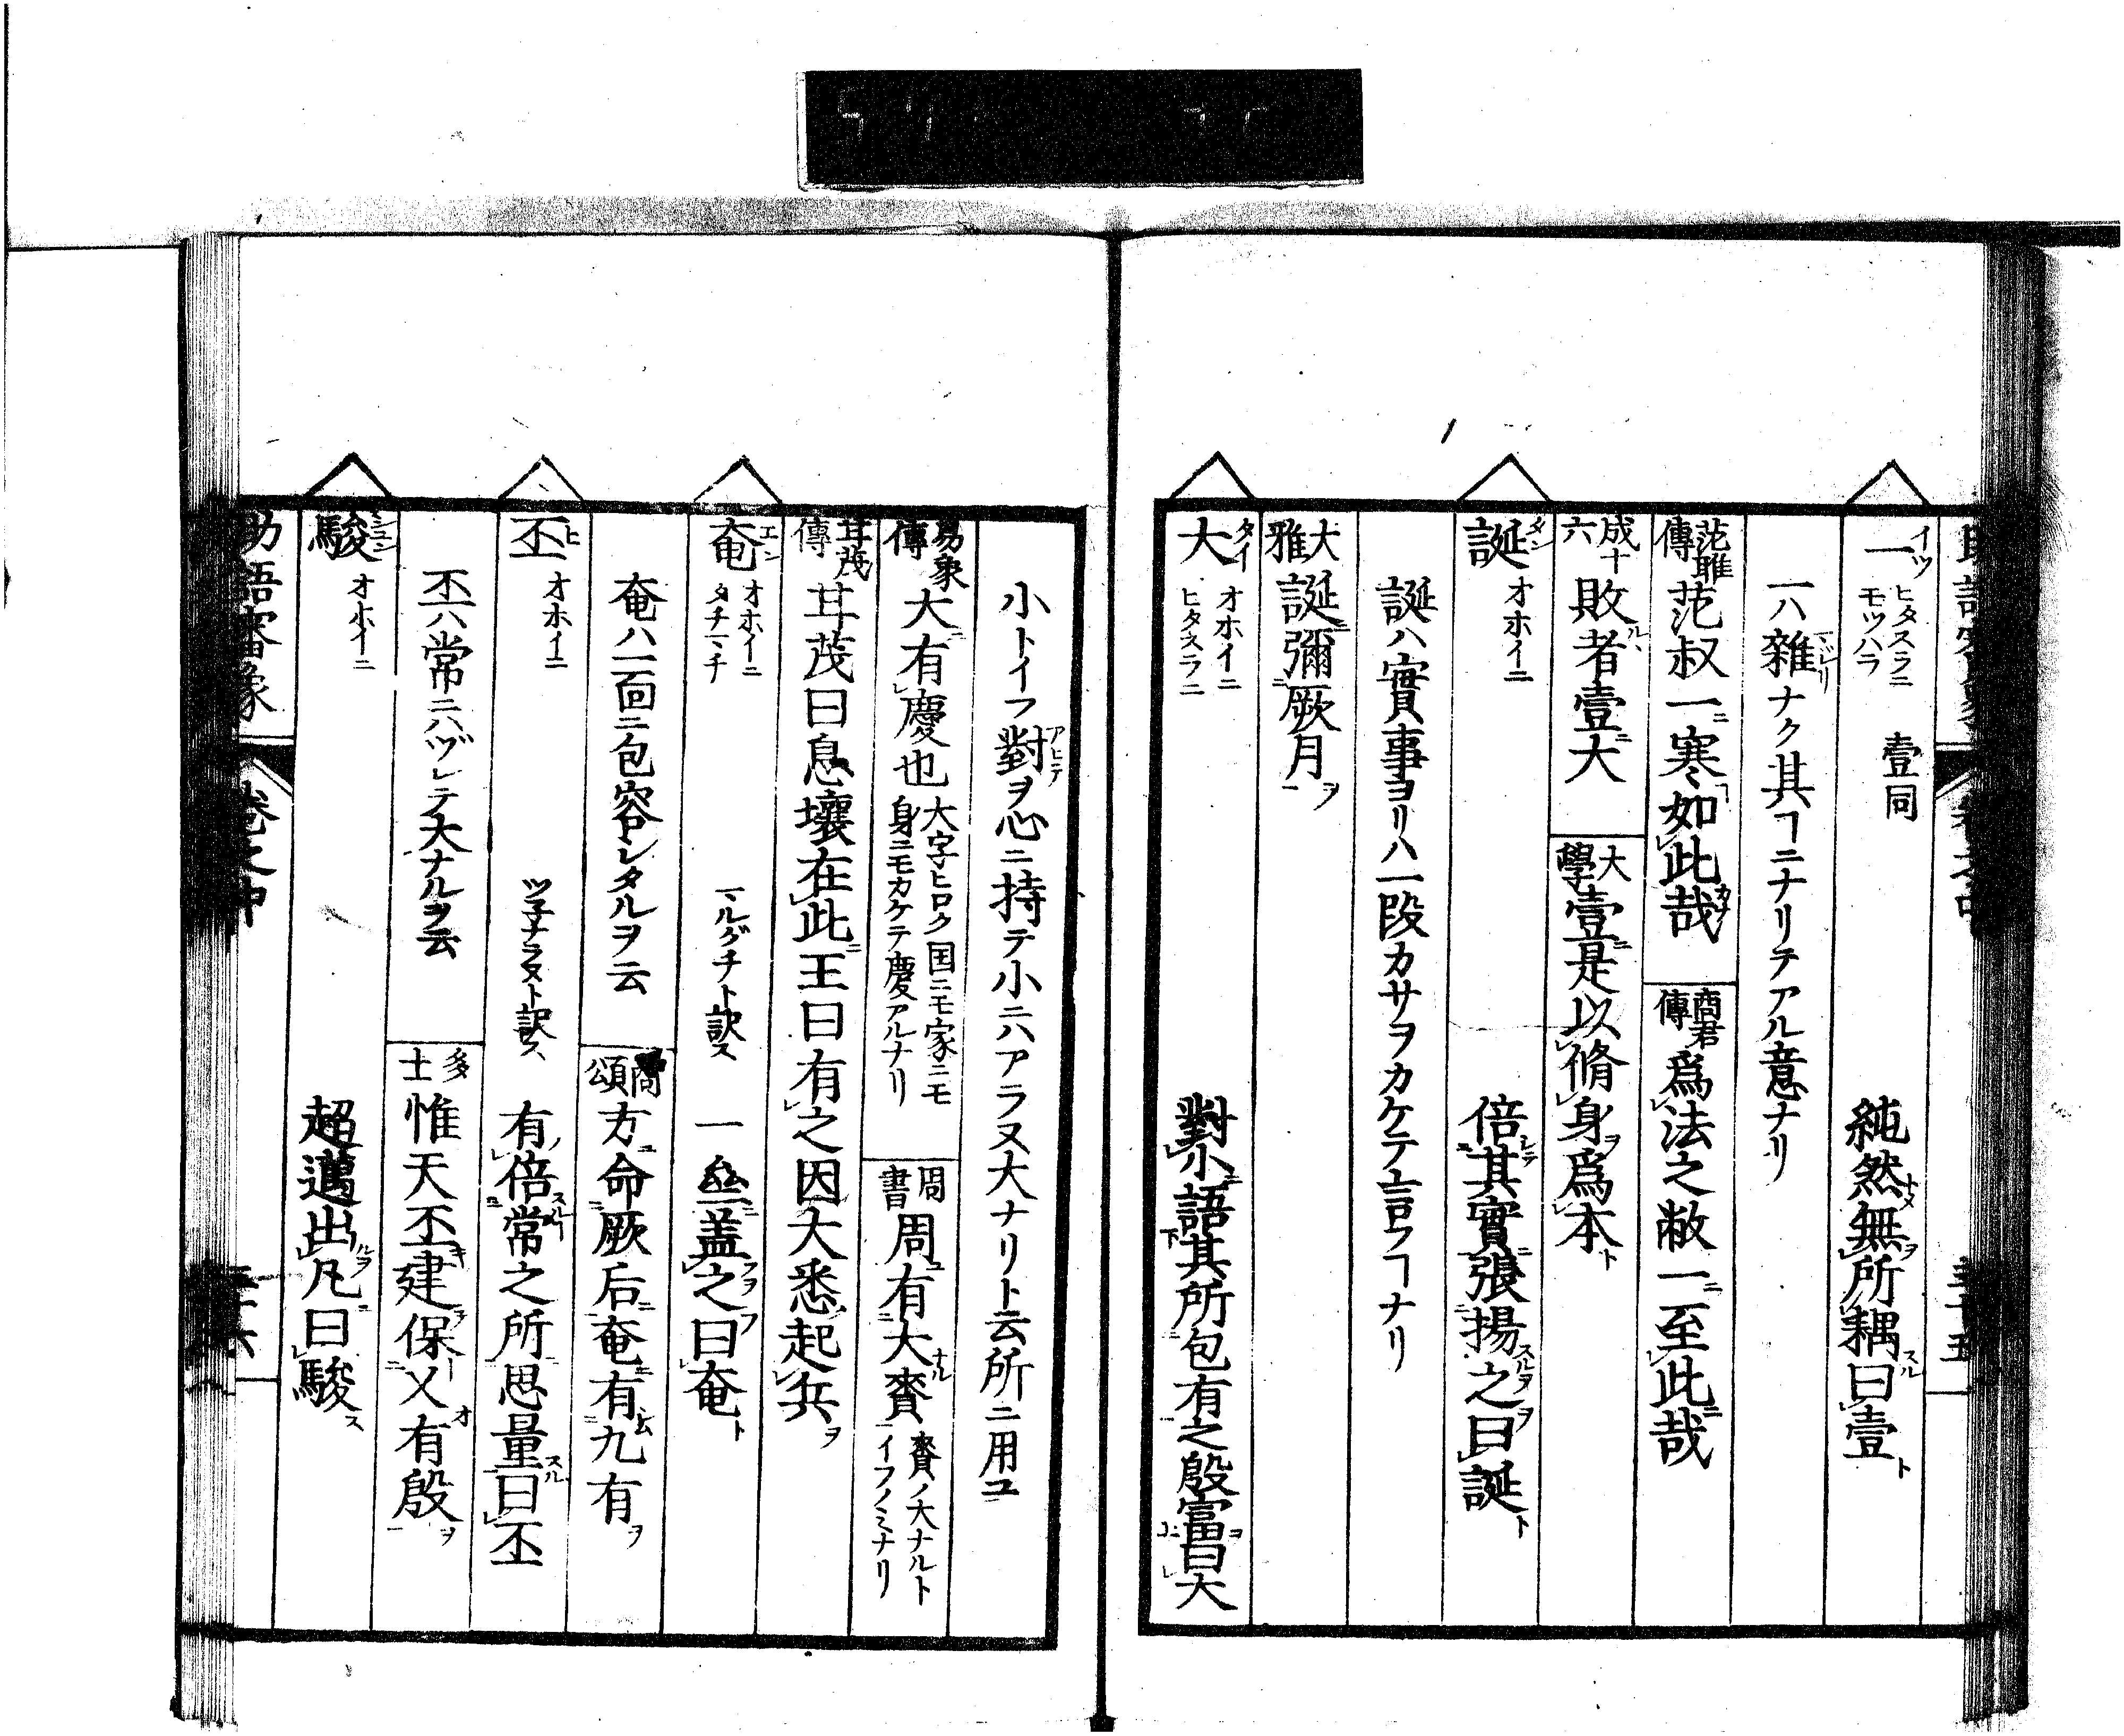 一 イツ ヒタスラニ モツハラ 壹同 純然無所耦曰壹
一ハ雜ナク其ヿニナリテアル意ナリ
范雎傳 范叔一寒如此哉 商君傳 爲法之敝一至此哉
成十六 敗者壹大 大學 壹是以脩身爲本
誕 タン オホイニ 倍其實張揚之曰誕
誕ハ實事ヨリハ一段カサヲカケテ言フヿナリ
大雅 誕彌厥月
大 タイ オホイニ ヒタスラニ 對小語其所包有之殷富曰大
小トイフ對ヲ心ニ持テ小ニハアラヌ大ナリト云所ニ用ユ
易象傳 大有慶也 大字ヒロク国ニモ家ニモ身ニモカケテ慶アルナリ 周書 周有大賚 賚ノ大ナルトイフノミナリ
甘茂傳 甘茂曰息壤在此王曰有之因大悉起兵
奄 エン オホイニ タチマチ マルグチト訳ス 一盖之曰奄
奄ハ一面ニ包容レタルヲ云 商頌 方命厥后奄有九有
丕 ヒ オホイニ ツ子ナラヌト訳ス 有倍常之所思量曰丕
丕ハ常ニハヅレテ大ナルヲ云 多士 惟天丕建保乂有殷
駿 シュン オホイニ 超邁出凡曰駿
助語審象 卷之中